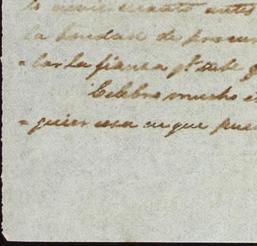 lo envie cuanto antes
la bondad de procur
=lar la fianza pr. debe
Celebro mucho
=quier cosa en que pue